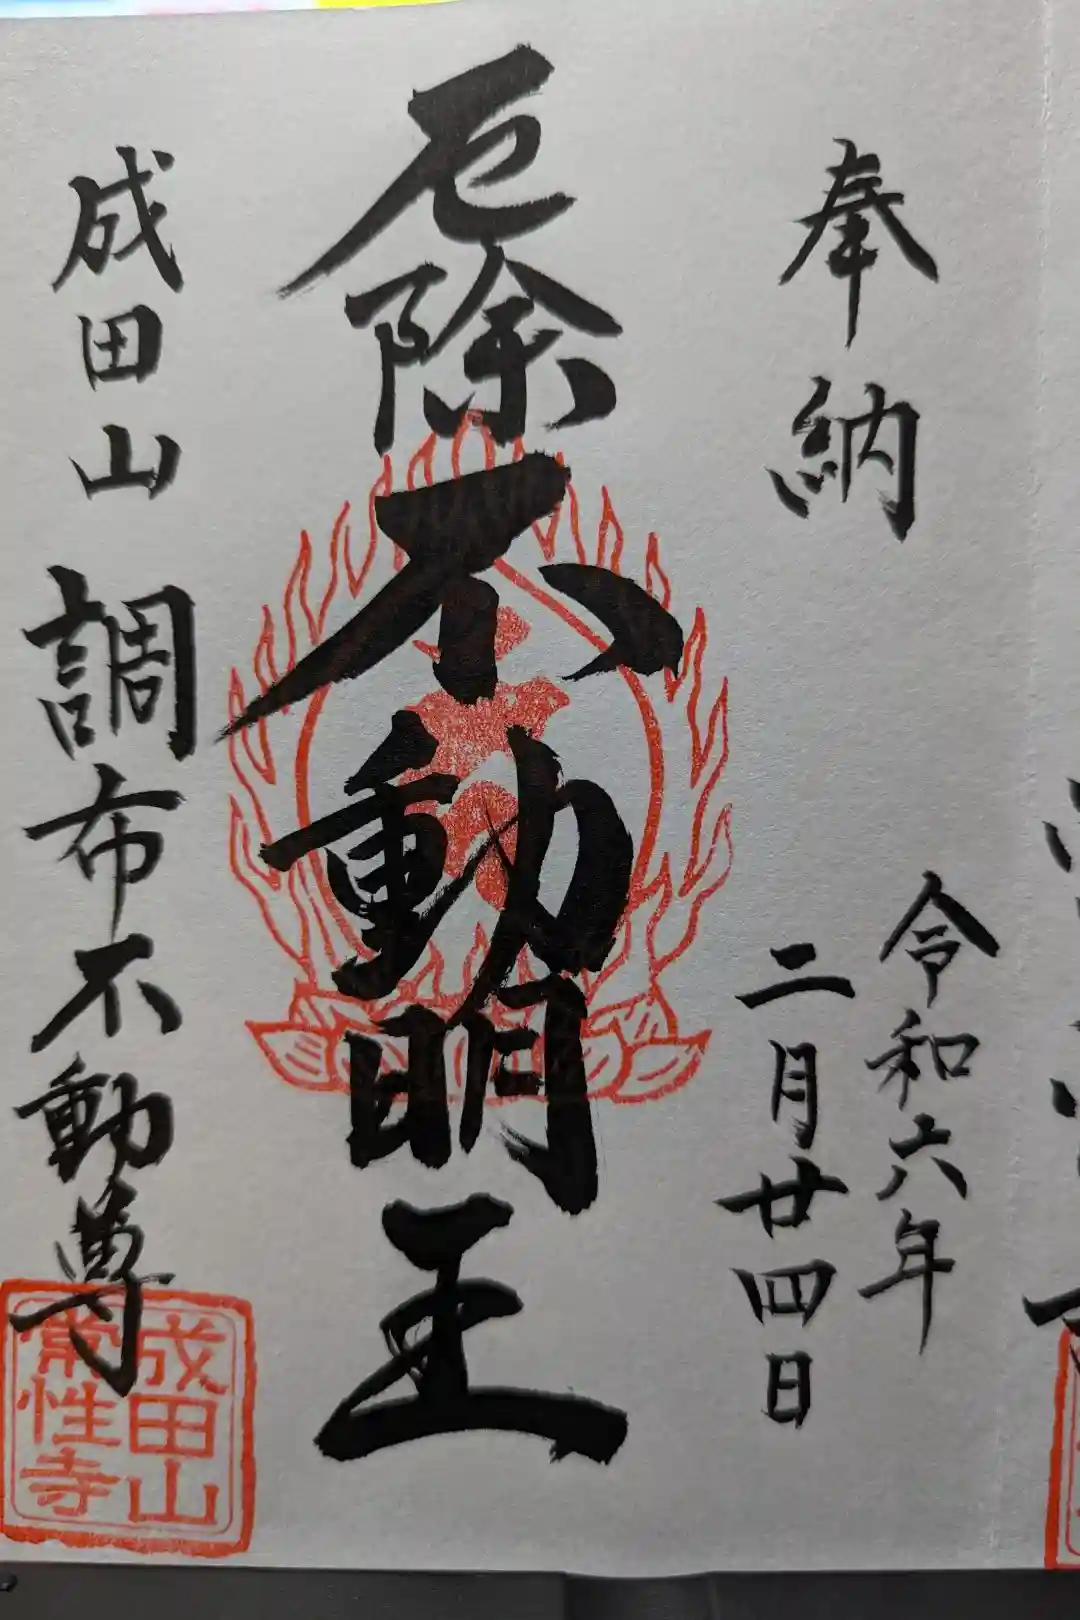 奉納
令和六年
二月廿四日
厄除不動明王
成田山 調布不動尊
成田山
常性寺